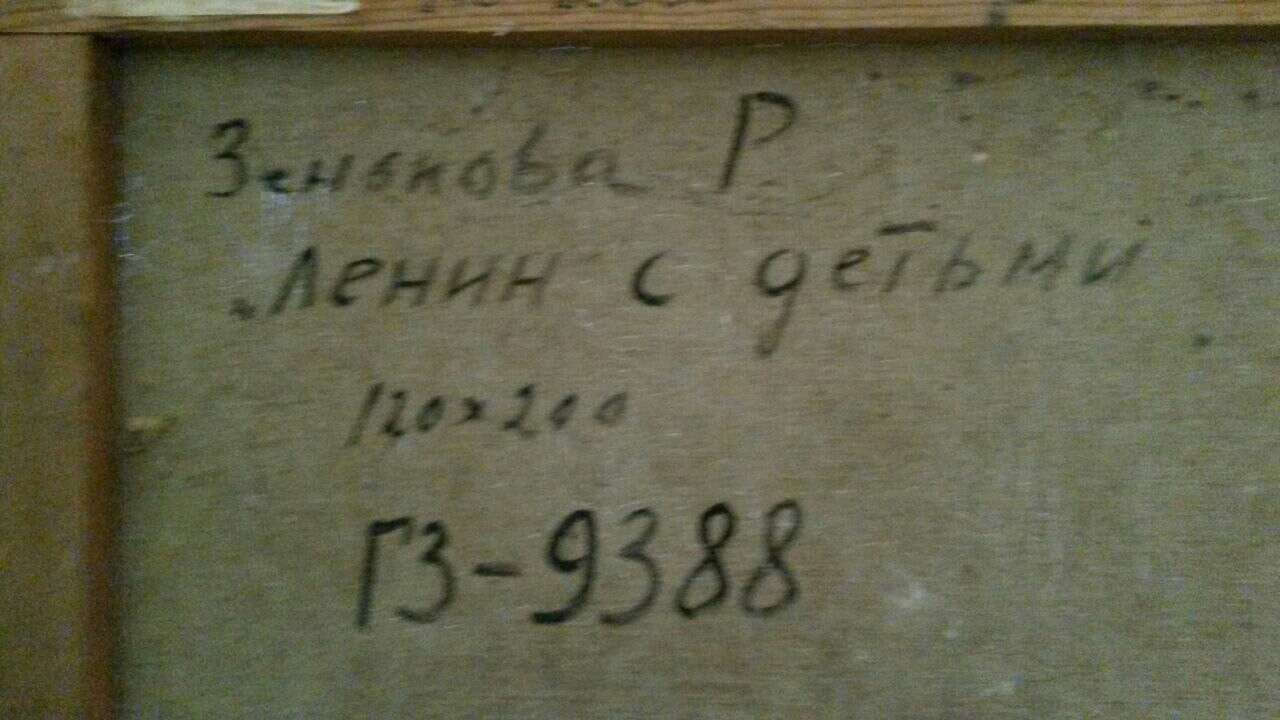 Зенькова Р
„Ленин с детьми
120×200
ГЗ-9388